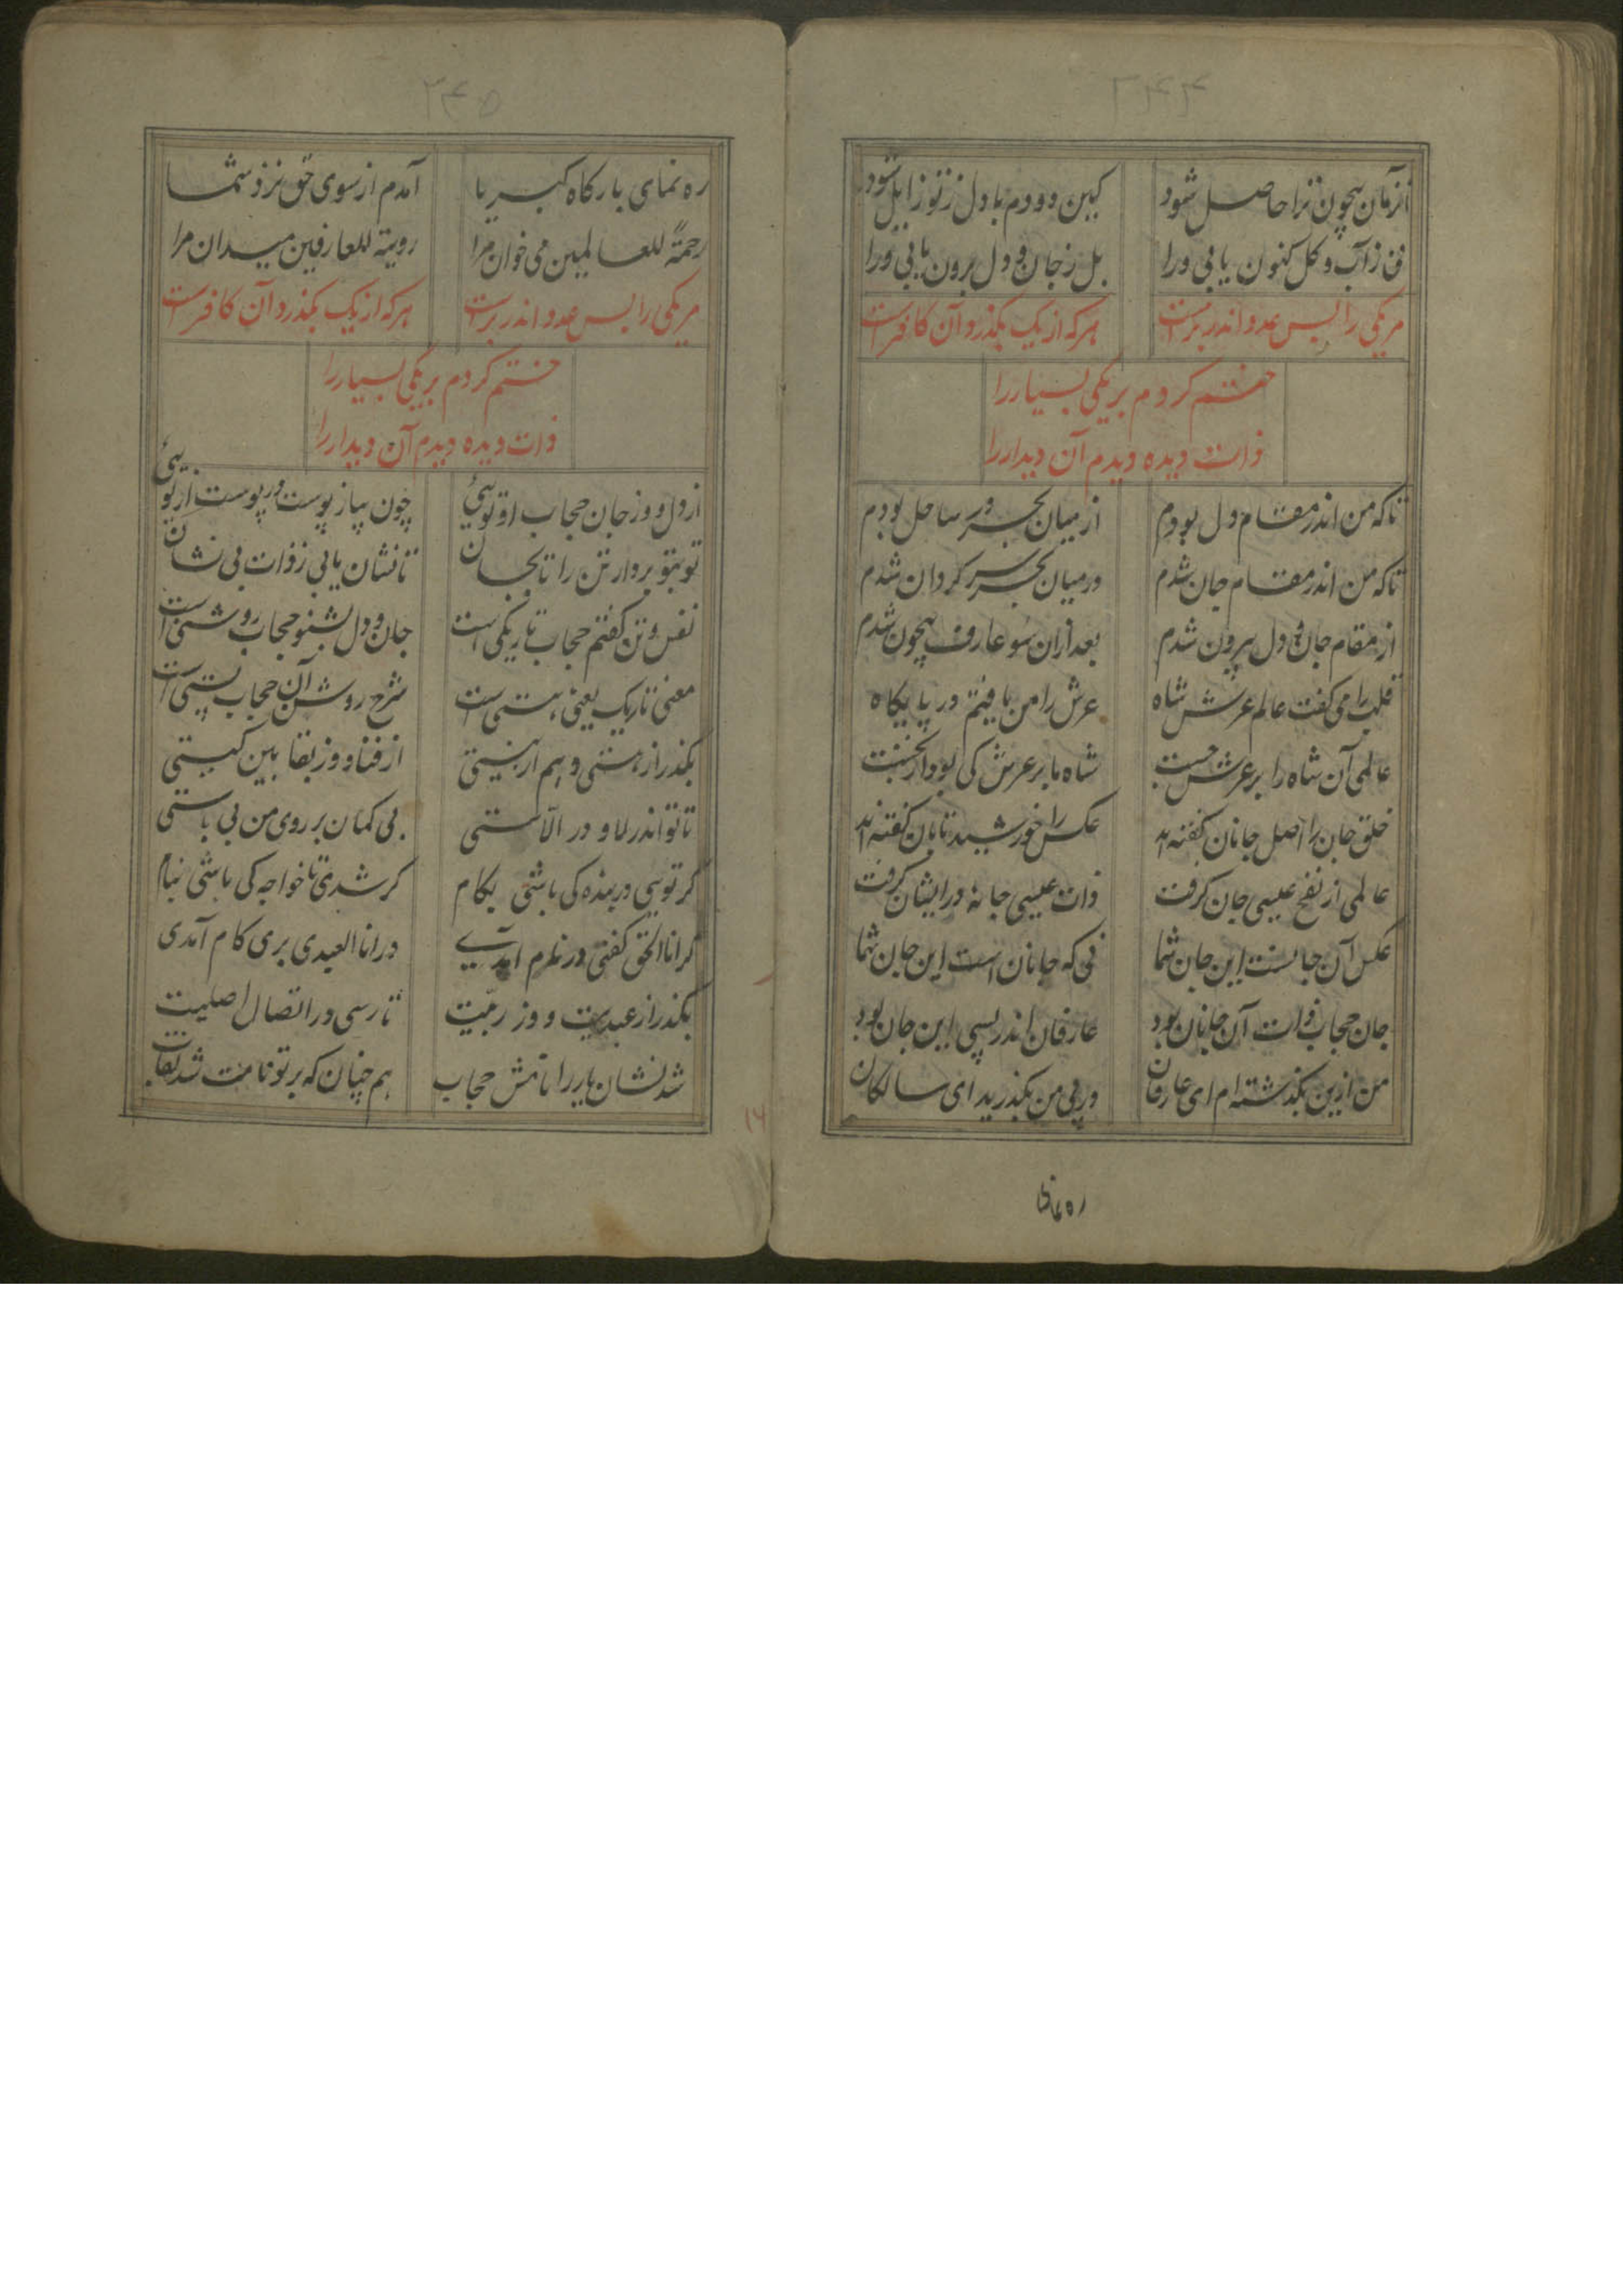 ۲۴۴
آنزمان بیچون ترا حاصل شود کین دو دم با دل ز تو زایل شود
فی ز آب و کل کنون یابی ورا بل ز جان و دل برون یابی ورا
مریکی را بس عدد اندر برست هرکه از یک بکذرد آن کافرست
ختم کردم بریکی بسیار را
ذات دیده دیدم آن دیدار را
تا که من اندر مقام دل بودم از میان بحر در ساحل بودم
تا که من اندر مقام جان شدم در میان بحر سرکردان شدم
از مقام جان و دل بیرون شدم بعد ازان سو عارف بیچون شدم
قلب را می کفت عالم عرش شاه عرش را من یافتم در پایکاه
عالمی آن شاه را بر عرش جست شاه ما بر عرش کی بود از نخست
خلق جان را اصل جانان کفته اند عکس را خورشید تابان کفته اند
عالمی از نفخ عیسی جان کرفت ذات عیسی در ایشان کرفت
عکس آن جانست این جان شما نی که جانان است این جان شما
جان حجاب ذات آن جانان بود عارفان اندر پی این جان بود
من ازین بکذشته ام ای عارفان در پی من بکذرید ای سالکان
ره نمای
۲۴۵
ره نمای بارکاه کبریا آمدم از سوی حق نزد شما
رحمة للعالمین می خوان مرا رویة للعارفین میدان مرا
مریکی را بس عدد اندر برست هرکه از یک بکذرد آن کافرست
ختم کردم بریکی بسیار را
ذات دیده دیدم آن دیدار را
از دل و وز جان حجاب او توئی چون پیاز پوست در پوست از توئی
تو بتو بردار تن را تا بجان تا نشان یابی ز ذات بی نشان
نفس و تن کفتم حجاب تاریکی است جان و دل بشنو حجاب روشنی است
معنی تاریک یعنی هستی است شرح روشن آن حجاب پستی است
بکذر از هستی و هم از نیستی از فنا و وز بقا بین کیستی
تا تو اندر لا و در الاستی بی کمان بر روی من بی باستی
کر تویی در بنده کی باشی بکام کر شدی تا خواجه کی باشی بنام
کر انا الحق کفتی در نارم آمدی در انا العبدی بری کام آمدی
بکذر از عبدیت و وز ربیت تا رسی در اتصال اصلیت
شد نشان یار را نامش حجاب هم چنان که بر تو قامت شد نقاب
۱۶